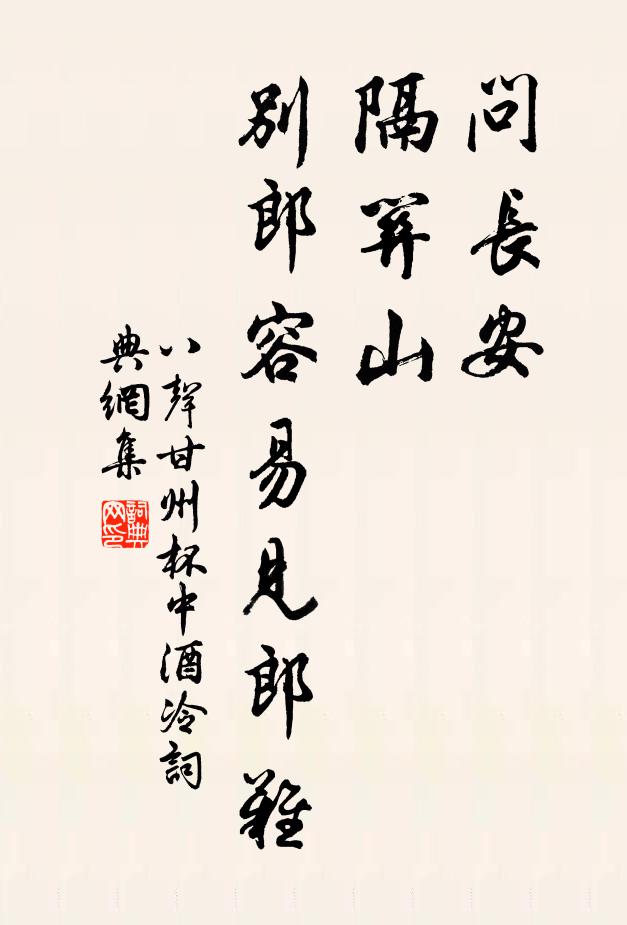 問長安
隔關山
別郎容易見郎難
八聲甘州杯中酒冷詞
典網集
詞典网印